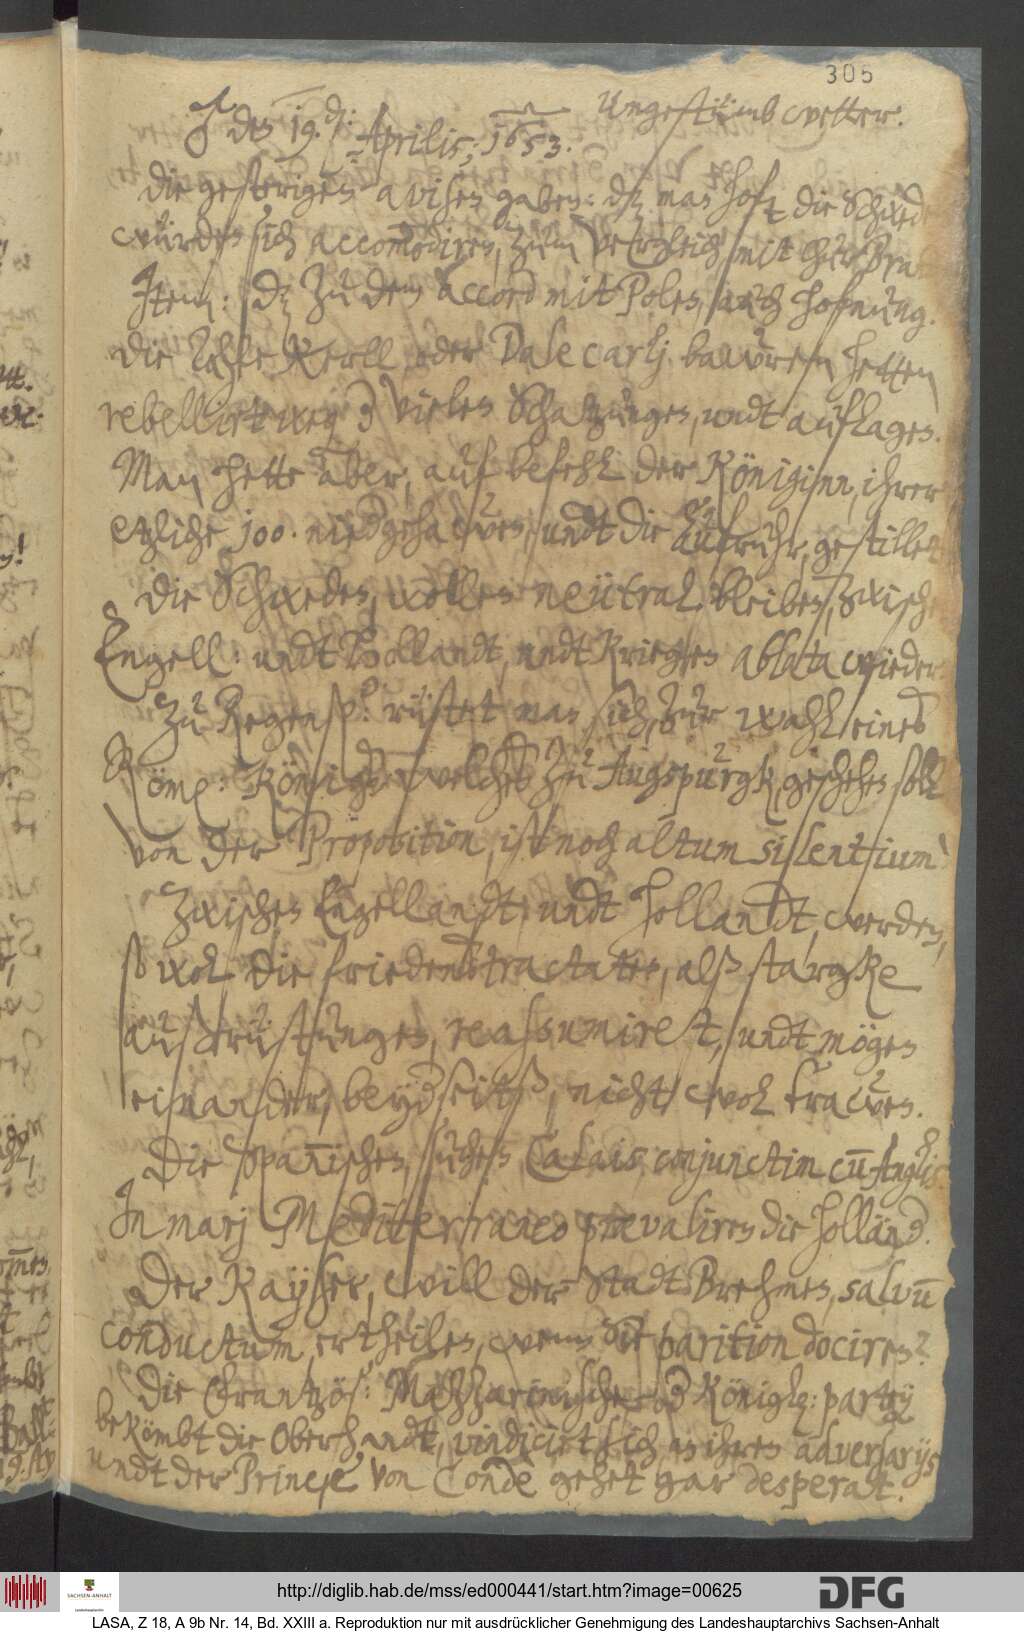 305
♂ den 19. d: Aprilis; 1653. Ungestümb wetter.
Die gestrigen avisen gaben: dz man hoft die Schwed
würden sich accommodiren, zum Vergleich mit ChurBra
Item: dz zu dem accord mit Polen, auch hofnung.
Die Kerll oder Dalecarlj. bawren hetten
rebellirt weg vielen Schatzungen, undt auflagen.
Man hette aber, auf befehl der Königinn, ihrer
etzliche 100. niedgehawen, undt die aufruhr, gestillet
Die Schweden, wollen neutral bleiben, zwische
Engell: undt Hollandt, undt kriegen ablata wieder.
Zu Regensp: rüstet man sich, zur wahl eines
Röm: Königs welches zu Augspurgk, geschehen soll
von der Proposition, ist noch altum silentium!
Zwischen Engellandt, undt Hollandt, werden,
so wol die friedenstractaten, alß stargke
außrüstungen, reassumiret, undt mögen
einander, beydseitß, nicht wol trawen.
Die Spannischen, suchen Calais, conjunctim cum Anglis
In marj Mediterraneo prevaliren die Holländ.
Der Kayser, will der Stadt Brehmen, salvum
conductum, ertheilen, wenn Sie parition dociren?
Die Frantzös: Mazzarinische Königl: party
bekömbt die Oberhandt, vindicirt sich, an ihren adversarijs
undt der Prince von Condè gehet gar desperat.
http://diglib.hab.de/mss/ed000441/start.htm?image=00625
SACHSEN-ANHALT
DFG
LASA, Z 18, A 9b Nr. 14, Bd. XXIII a. Reproduktion nur mit ausdrücklicher Genehmigung des Landeshauptarchivs Sachsen-Anhalt